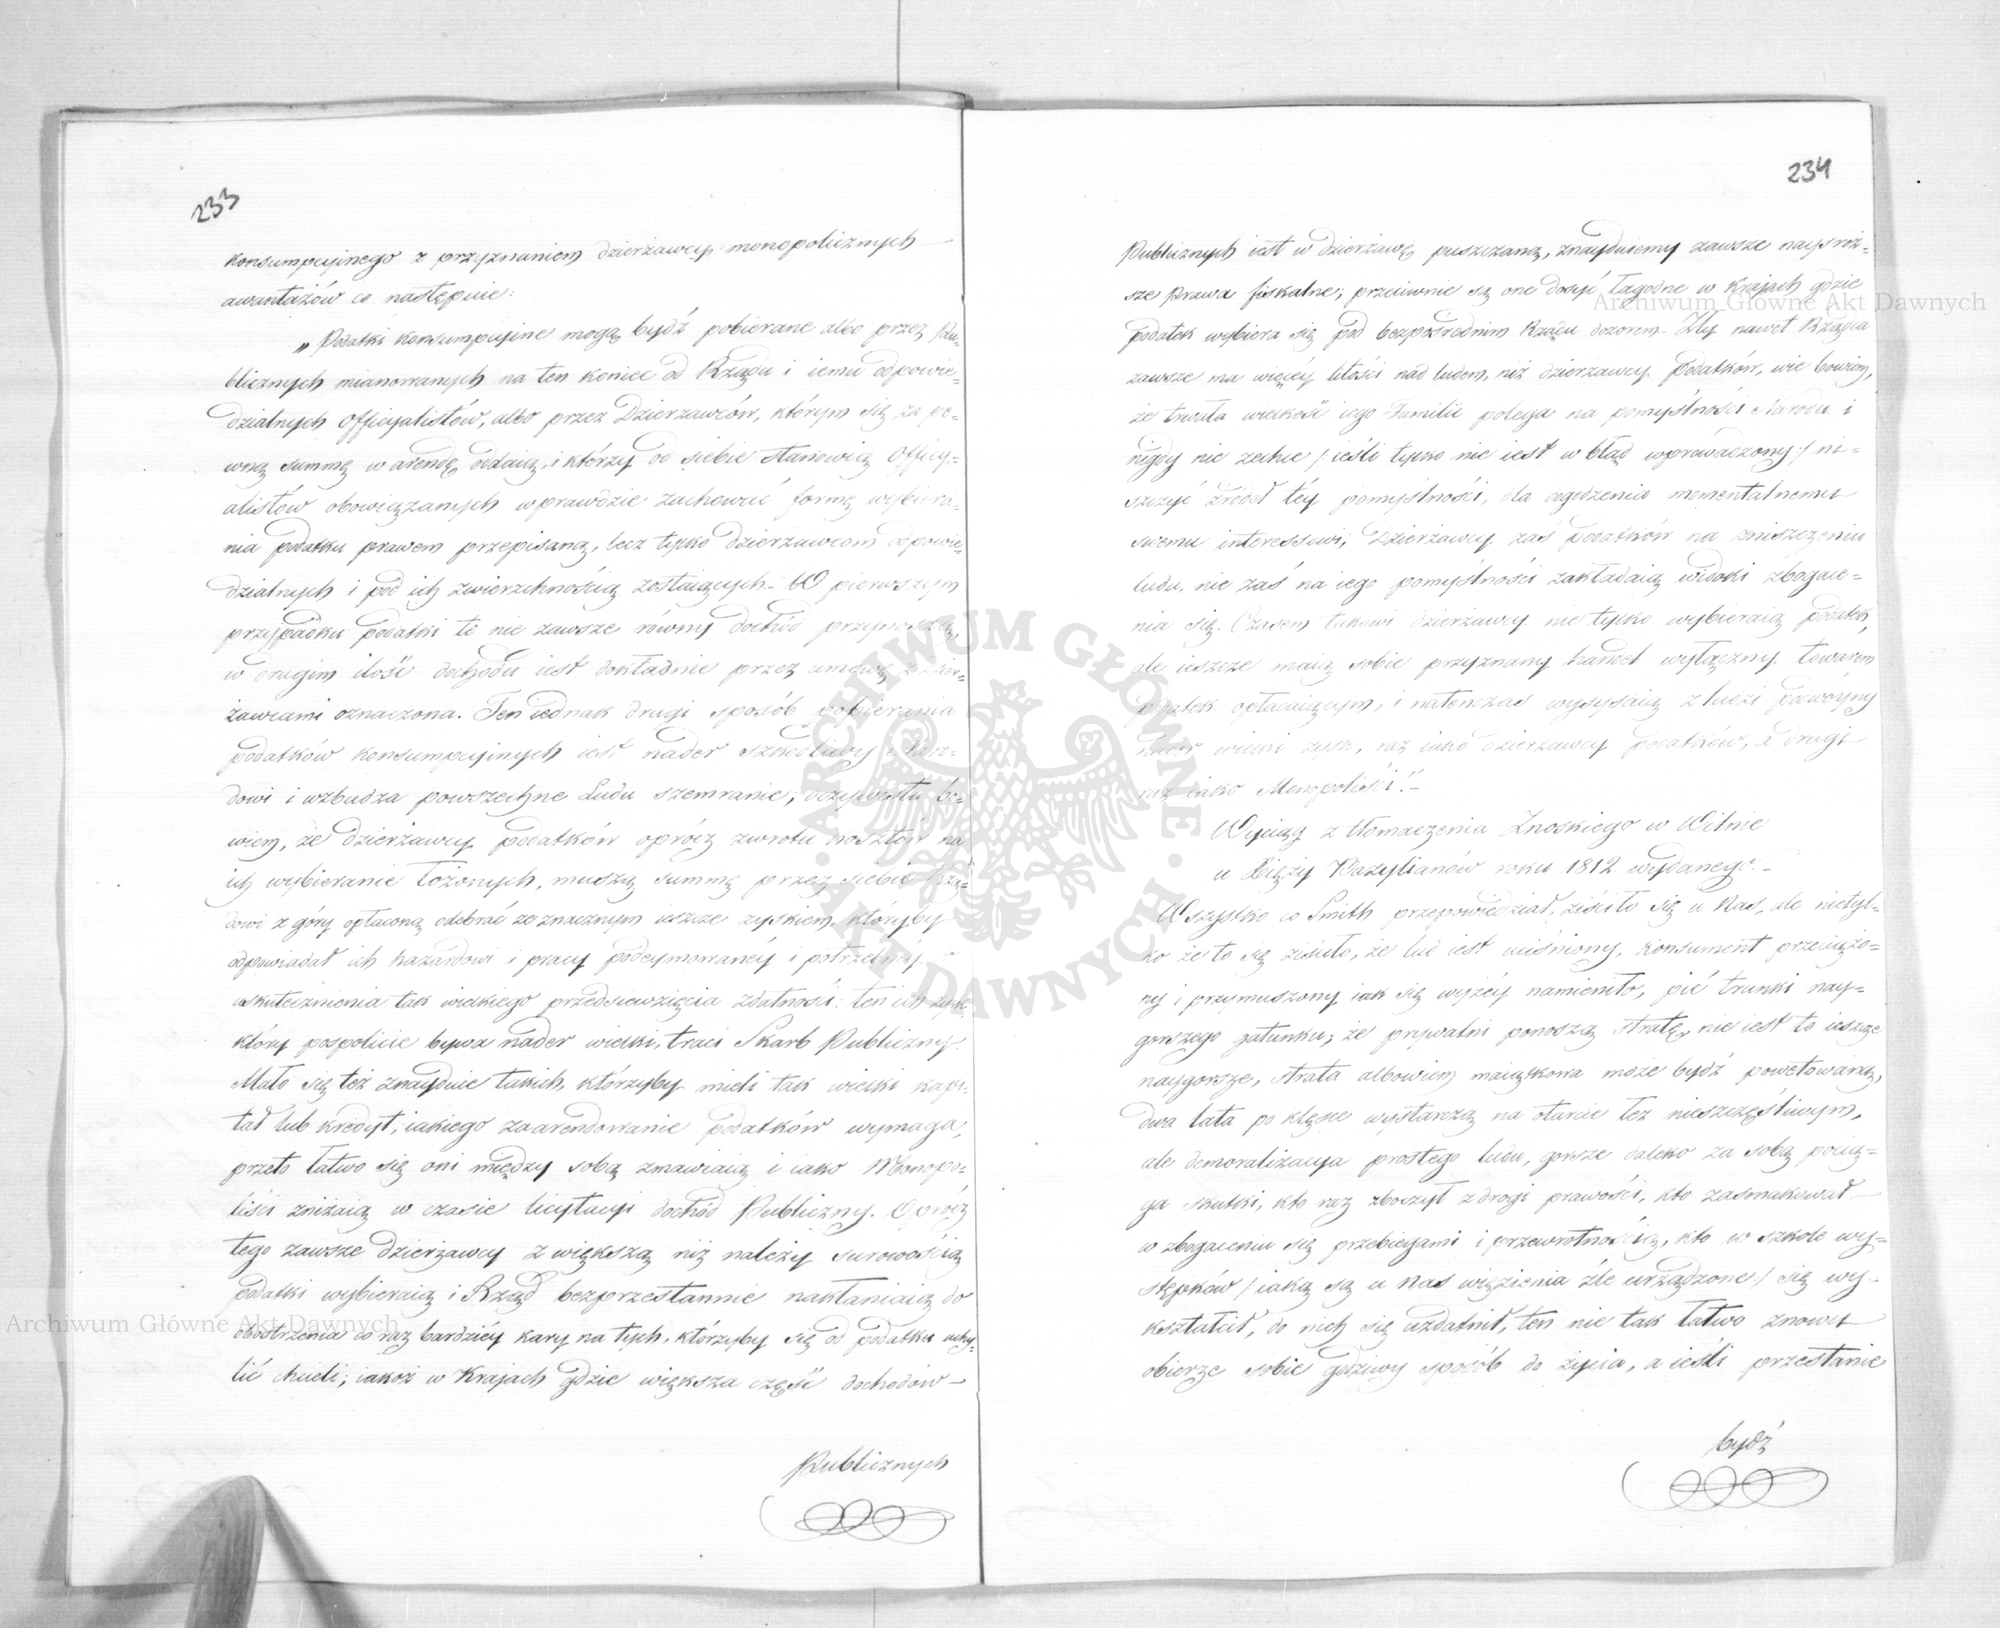 233
konsumpcyinego z przyznaniem dzierżawcy monopolicznych
awantażów co następuie:
„Podatki konsumpcyine mogą bydź pobierane albo przez Pu-
blicznych mianowanych na ten koniec od Rządu i iemu odpowie-
dzialnych Officyalistów, albo przez Dzierżawców, którym się za pe-
wną summę w arendę oddaią, i którzy od siebie stanowią Officy-
alistów obowiązanych wprawdzie zachować formę wybiera-
nia podatku prawem przepisaną, lecz tylko dzierżawcom odpowie-
dzialnych i pod ich zwierzchnością zostaiących. W pierwszym
przypadku podatki te nie zawsze równy dochód przynoszą,
w drugim ilość dochodu iest dokładnie przez umowę z dzier-
żawcami oznaczona. Ten iednak drugi sposób pobierania
podatków konsumpcyinych iest nader szkodliwy Naro-
dowi i wzbudza powszechne Ludu szemranie; oczywista bo-
wiem, że dzierżawcy podatków oprócz zwrotu kosztów na
ich wybieranie łożonych, muszą summę przez siebie Rzą-
dowi z góry opłaconą odebrać ze znacznym ieszcze zyskiem, któryby
odpowiadał ich hazardowi i pracy podeymowanéy i potrzebnéy do
uskutecznienia tak wielkiego przedsięwzięcia zdatności: ten ich zysk,
który pospolicie bywa nader wielki, traci Skarb Publiczny.
Mało się też znayduie takich, którzyby mieli tak wielki kapi-
tał lub kredyt, iakiego zaarendowanie podatków wymaga,
przeto łatwo się oni między sobą zmawiaią i iako Monopo-
liści zniżaią w czasie licytacyi dochód Publiczny. Oprócz
tego zawsze dzierżawcy z większą niż należy surowością
podatki wybieraią i Rząd bezprzestannie nakłaniaią do
obostrzenia co raz bardziéy kary na tych, którzyby się od podatku uchy-
lić chcieli; iakoż w Krajach gdzie większa część dochodów
Publicznych
234
Publicznych iest w dzierżawę puszczaną, znayduiemy zawsze naysroż-
sze Prawa fiskalne; przeciwnie są one dosyć łagodne w Krajach gdzie
podatek wybiera się pod bezpośrednim Rządu dozorem. Zły nawet Rządca
zawsze ma więcéy litości nad ludem, niż dzierżawcy Podatków, wie bowiem,
że trwała wielkość iego Familii polega na pomyślności Narodu i
nigdy nie zechce /:ieśli tylko nie iest w błąd wprowadzony:/ ni-
szczyć źródeł téy pomyślności, dla dogodzenia momentalnemu
swemu interessowi, Dzierżawcy zaś podatków na zniszczeniu
ludu, nie zaś na iego pomyślności zakładaią widoki zbogace-
nia się. Czasem takowi dzierżawcy nie tylko wybieraią podatek,
ale ieszcze maią sobie przyznany handel wyłączny towarem
podatek opłacaiącym, i natenczas wysysaią z ludzi podwóyny
nader wielki zysk, raz iako dzierżawcy podatków, a drugi
raz iako Monopoliści."
Wyciąg z tłomaczenia Znoskiego w Wilnie
u Xięży Bazylianów roku 1812 wydanego.
Wszystko co Smith przepowiedział, ziściło się u Nas, ale nietyl-
ko że to się ziściło, że lud iest uciśniony, konsument przeciążo-
ny i przymuszony iak się wyżéy namieniło, pić trunki nay-
gorszego gatunku; że prywatni ponoszą stratę, nie iest to ieszcze
naygorsze, strata albowiem maiątkowa może bydź powetowaną,
dwa lata po klęsce wystarczą na otarcie łez nieszczęśliwym,
ale demoralizacya prostego ludu, gorsze daleko za sobą pocią-
ga skutki, kto raz zboczył z drogi prawości, kto zasmakował
w zbogaceniu się przebiegami i przewrotnością, kto w szkole wy-
stępków /:iaką są u Nas więzienia źle urządzone:/ się wy-
kształcił, do nich się uzdatnił, ten nie tak łatwo znowu
obierze sobie godziwy sposób do życia, a ieśli przestanie
bydź
Archiwum Główne Akt Dawnych
Archiwum Główne Akt Dawnych
ARCHIWUM GŁÓWNE AKT DAWNYCH